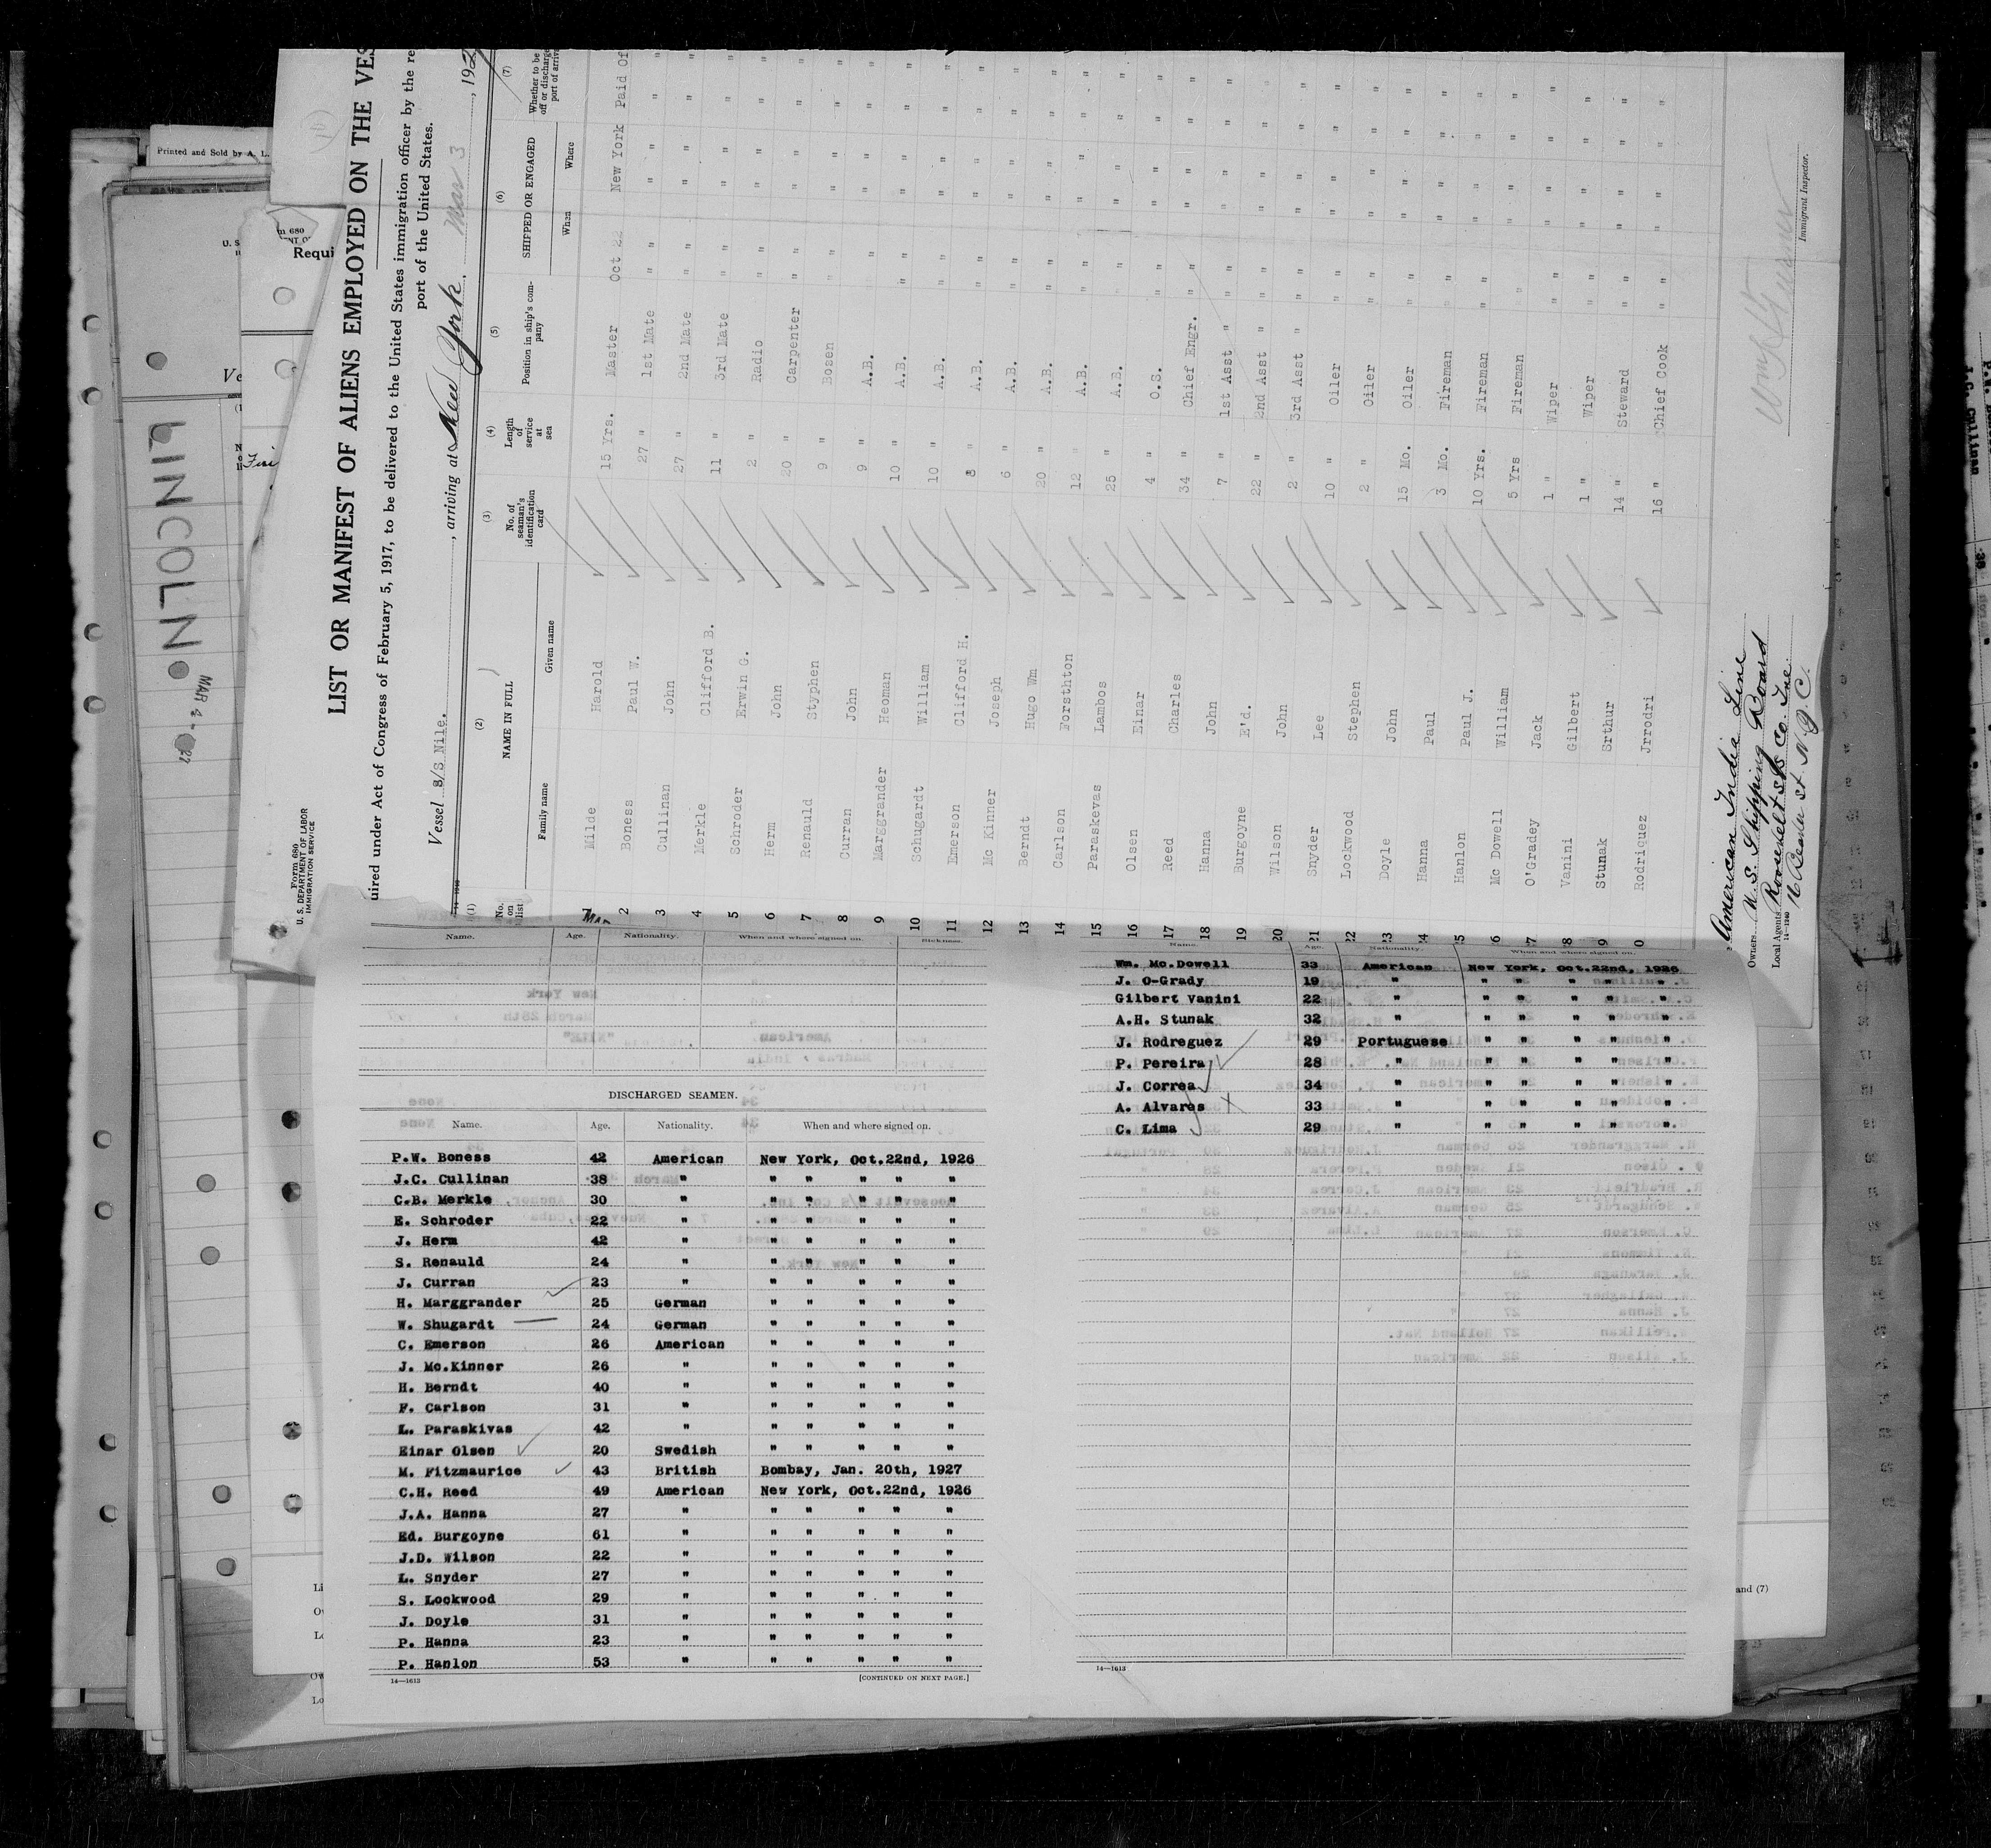 Printed and Sold by A. L.
LINCOLN
MAR 4 - 1927
Form 680
U. S. DEPARTMENT OF LABOR
IMMIGRATION SERVICE
LIST OR MANIFEST OF ALIENS EMPLOYED ON THE VES
uired under Act of Congress of February 5, 1917, to be delivered to the United States immigration officer by the re
port of the United States.
Vessel S/S Nile. , arriving at New York. Mar 3 , 192
(1) (2) (3) (4) (5) (6) (7)
No. on list NAME IN FULL No. of seaman's identification card Length of service at sea Position in ship's company SHIPPED OR ENGAGED Whether to be off or discharge port of arriva
Family name Given name When Where
1 Milde Harold 15 Yrs. Master Oct 22 New York Paid Of
2 Boness Paul W. 27 " 1st Mate " " " " "
3 Cullinan John 27 " 2nd Mate " " " " "
4 Merkle Clifford B. 11 " 3rd Mate " " " " "
5 Schroder Erwin G. 2 " Radio " " " " "
6 Herm John 20 " Carpenter " " " " "
7 Renauld Styphen 9 " Bosen " " " " "
8 Curran John 9 " A.B. " " " " "
9 Marggrander Heoman 10 " A.B. " " " " "
10 Schugardt William 10 " A.B. " " " " "
11 Emerson Clifford H. 8 " A.B. " " " " "
12 Mc Kinner Joseph 6 " A.B. " " " " "
13 Berndt Hugo Wm 20 " A.B. " " " " "
14 Carlson Forsthton 12 " A.B. " " " " "
15 Paraskevas Lambos 25 " A.B. " " " " "
16 Olsen Einar 4 " O.S. " " " " "
17 Reed Charles 34 " Chief Engr. " " " " "
18 Hanna John 7 " 1st Asst " " " " " "
19 Burgoyne E'd. 22 " 2nd Asst " " " " " "
20 Wilson John 2 " 3rd Asst " " " " " "
21 Snyder Lee 10 " Oiler " " " " "
22 Lockwood Stephen 2 " Oiler " " " " "
23 Doyle John 15 Mo. Oiler " " " " "
24 Hanna Paul 3 Mo. Fireman " " " " "
5 Hanlon Paul J. 10 Yrs. Fireman " " " " "
6 Mc Dowell William 5 Yrs Fireman " " " " "
7 O'Gradey Jack 1 " Wiper " " " " "
8 Vanini Gilbert 1 " Wiper " " " " "
9 Stunak Srthur 14 " Steward " " " " "
0 Rodriquez Jrrodri 16 " Chief Cook " " " " "
American India Line
Owners U. S. Shipping Board
Local Agents Roosevelt S/S Co. Inc.
Immigrant Inspector.
Name. Age. Nationality. When and where signed on. Sickness.
DISCHARGED SEAMEN.
Name. Age. Nationality. When and where signed on.
P.W. Boness 42 American New York, Oct.22nd, 1926
J.C. Cullinan 38 " " " " " "
C.B. Merkle 30 " " " " " "
E. Schroder 22 " " " " " "
J. Herm 42 " " " " " "
S. Renauld 24 " " " " " "
J. Curran 23 " " " " " "
H. Marggrander 25 German " " " " "
W. Shugardt 24 German " " " " "
C. Emerson 26 American " " " " "
J. Mc.Kinner 26 " " " " " "
H. Berndt 40 " " " " " "
F. Carlson 31 " " " " " "
L. Paraskivas 42 " " " " " "
Einar Olsen 20 Swedish " " " " "
M. Fitzmaurice 43 British Bombay, Jan. 20th, 1927
C.H. Reed 49 American New York, Oct.22nd, 1926
J.A. Hanna 27 " " " " " "
Ed. Burgoyne 61 " " " " " "
J.D. Wilson 22 " " " " " "
L. Snyder 27 " " " " " "
S. Lockwood 29 " " " " " "
J. Doyle 31 " " " " " "
P. Hanna 23 " " " " " "
P. Hanlon 53 " " " " " "
14—1613 [CONTINUED ON NEXT PAGE.]
Name. Age. Nationality. When and where signed on.
Wm. Mc.Dowell 33 American New York, Oct.22nd, 1926
J. O-Grady 19 " " " " " "
Gilbert Vanini 22 " " " " " "
A.H. Stunak 32 " " " " " "
J. Rodreguez 29 Portuguese " " " " "
P. Pereira 28 " " " " " "
J. Correa 34 " " " " " "
A. Alvares 33 " " " " " "
C. Lima 29 " " " " " "
14—1613
and (7)